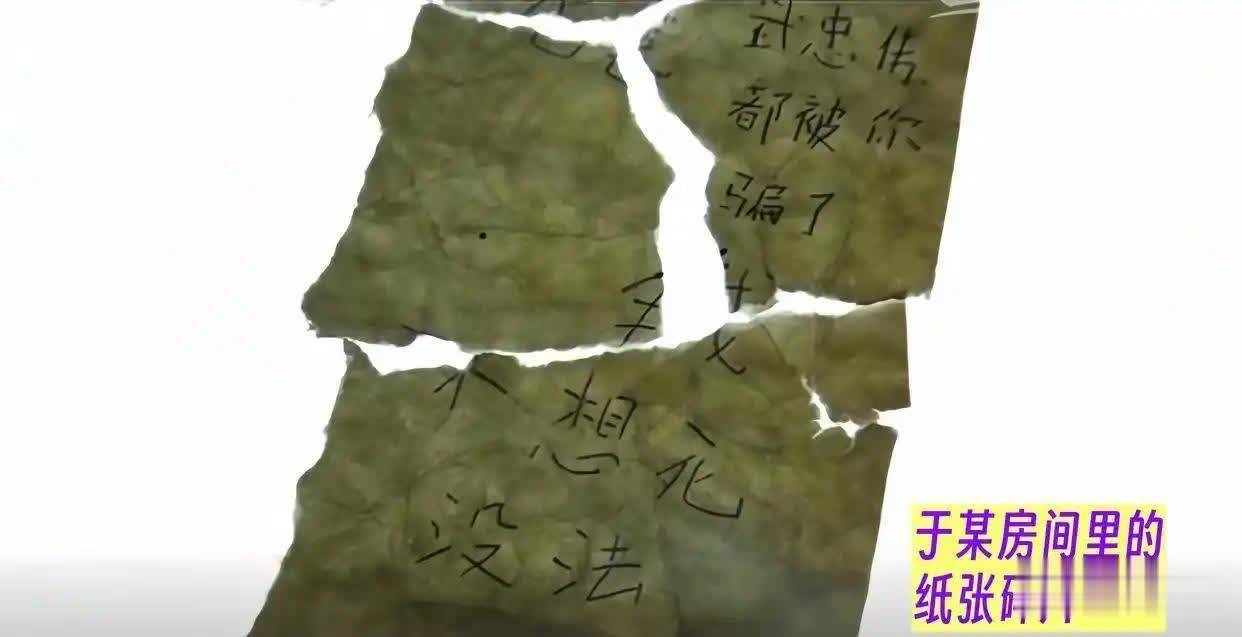 武忠传
都被你
骗了
我
不想死
没法
于某房间里的
纸张碎片